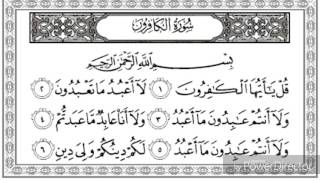 سُورَةُ الكَافِرُونَ
بِسْمِ اللَّهِ الرَّحْمَٰنِ الرَّحِيمِ
قُلْ يَٰٓأَيُّهَا ٱلْكَٰفِرُونَ ١ لَآ أَعْبُدُ مَا تَعْبُدُونَ ٢
وَلَآ أَنتُمْ عَٰبِدُونَ مَآ أَعْبُدُ ٣ وَلَآ أَنَا۠ عَابِدٌ مَّا عَبَدتُّمْ ٤
وَلَآ أَنتُمْ عَٰبِدُونَ مَآ أَعْبُدُ ٥ لَكُمْ دِينُكُمْ وَلِىَ دِينِ ٦
PowerDirector